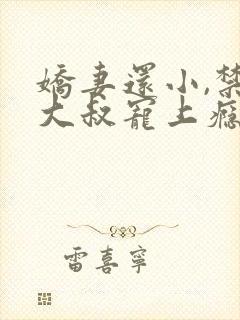 嬌妻還小,禁
大叔寵上癮
雷喜寧